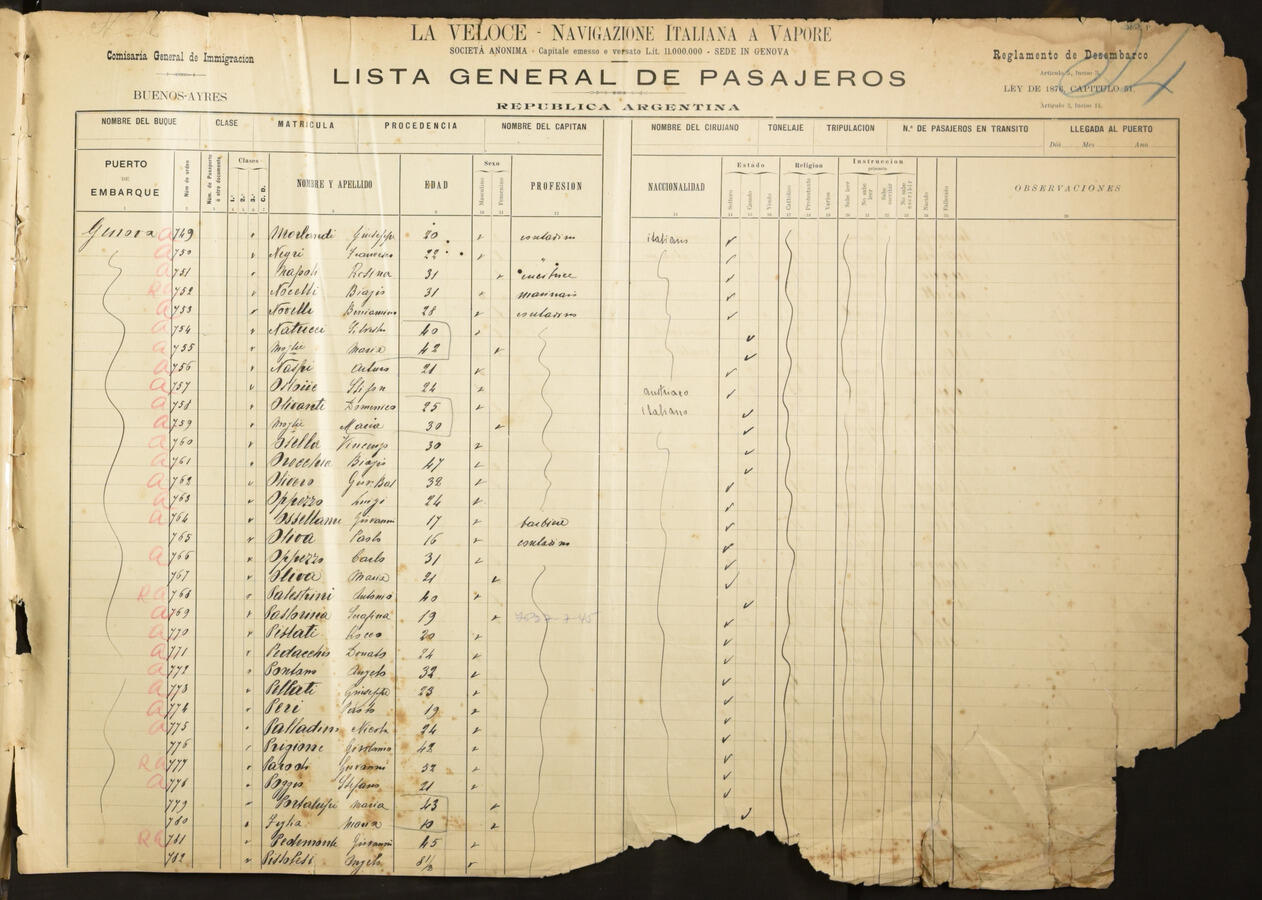 LA VELOCE - NAVIGAZIONE ITALIANA A VAPORE
SOCIETÀ ANONIMA - Capitale emesso e versato Lit. 11.000.000 - SEDE IN GENOVA
Comisaría General de Immigracion
BUENOS-AYRES
LISTA GENERAL DE PASAJEROS
REPUBLICA ARGENTINA
Reglamento de Desembarco
LEY DE 1876, CAPITULO
NOMBRE DEL BUQUE CLASE MATRICULA PROCEDENCIA NOMBRE DEL CAPITAN NOMBRE DEL CIRUJANO TONELAJE TRIPULACION N.º DE PASAJEROS EN TRANSITO LLEGADA AL PUERTO
Dia Mes Ano
PUERTO DE EMBARQUE Núm de orden Clases 1.ª 2.ª 3.ª NOMBRE Y APELLIDO EDAD Sexo Masculino Femenino PROFESION NACCIONALIDAD Estado Soltero Casado Viudo Religion Catolico Protestante Varios Instruccion Sabe leer No sabe leer Sabe escribir No sabe escribir Nacido Fallecido OBSERVACIONES
Genova a 749 Morlandi Giuseppe 20 contadino italiano
750 Negri Francesco 22 "
a 751 Napoli Rosina 31 cucitrice
Ra 752 Nocelli Biagio 31 marinaio
a 753 Novelli Beniamino 28 contadino
a 754 Natucci Silvestro 40
a 755 Moglie Maria 42
a 756 Naspi Arturo 21
a 757 Stefan 24 austriaco
a 758 Olivanti Domenico 25 italiano
a 759 Moglie Maria 30
a 760 Osella Vincenzo 30
a 761 Biagio 47
a 762 Olivero 32
a 763 Oppezzo Luigi 24
a 764 Giovanni 17 barbiere
765 Oliva Paolo 16 contadino
a 766 Oppezzo Carlo 31
767 Oliva Maria 21
Ra 768 Palestrini Antonio 40
a 769 Pastorina Serafina 19
a 770 Pistati Rocco 20
a 771 Pedacchio Donato 24
a 772 Pontano Angelo 32
a 773 Pellati Giuseppe 23
a 774 Peri Paolo 19
a 775 Palladino Nicola 24
776 Prigione Girolamo 42
Ra 777 Parodi Giovanni 32
a 778 Poggio Stefano 21
779 Maria 43
780 Figlia Maria 10
Ra 781 Pedemonte Giovanni 45
782 Pistolesi Angelo